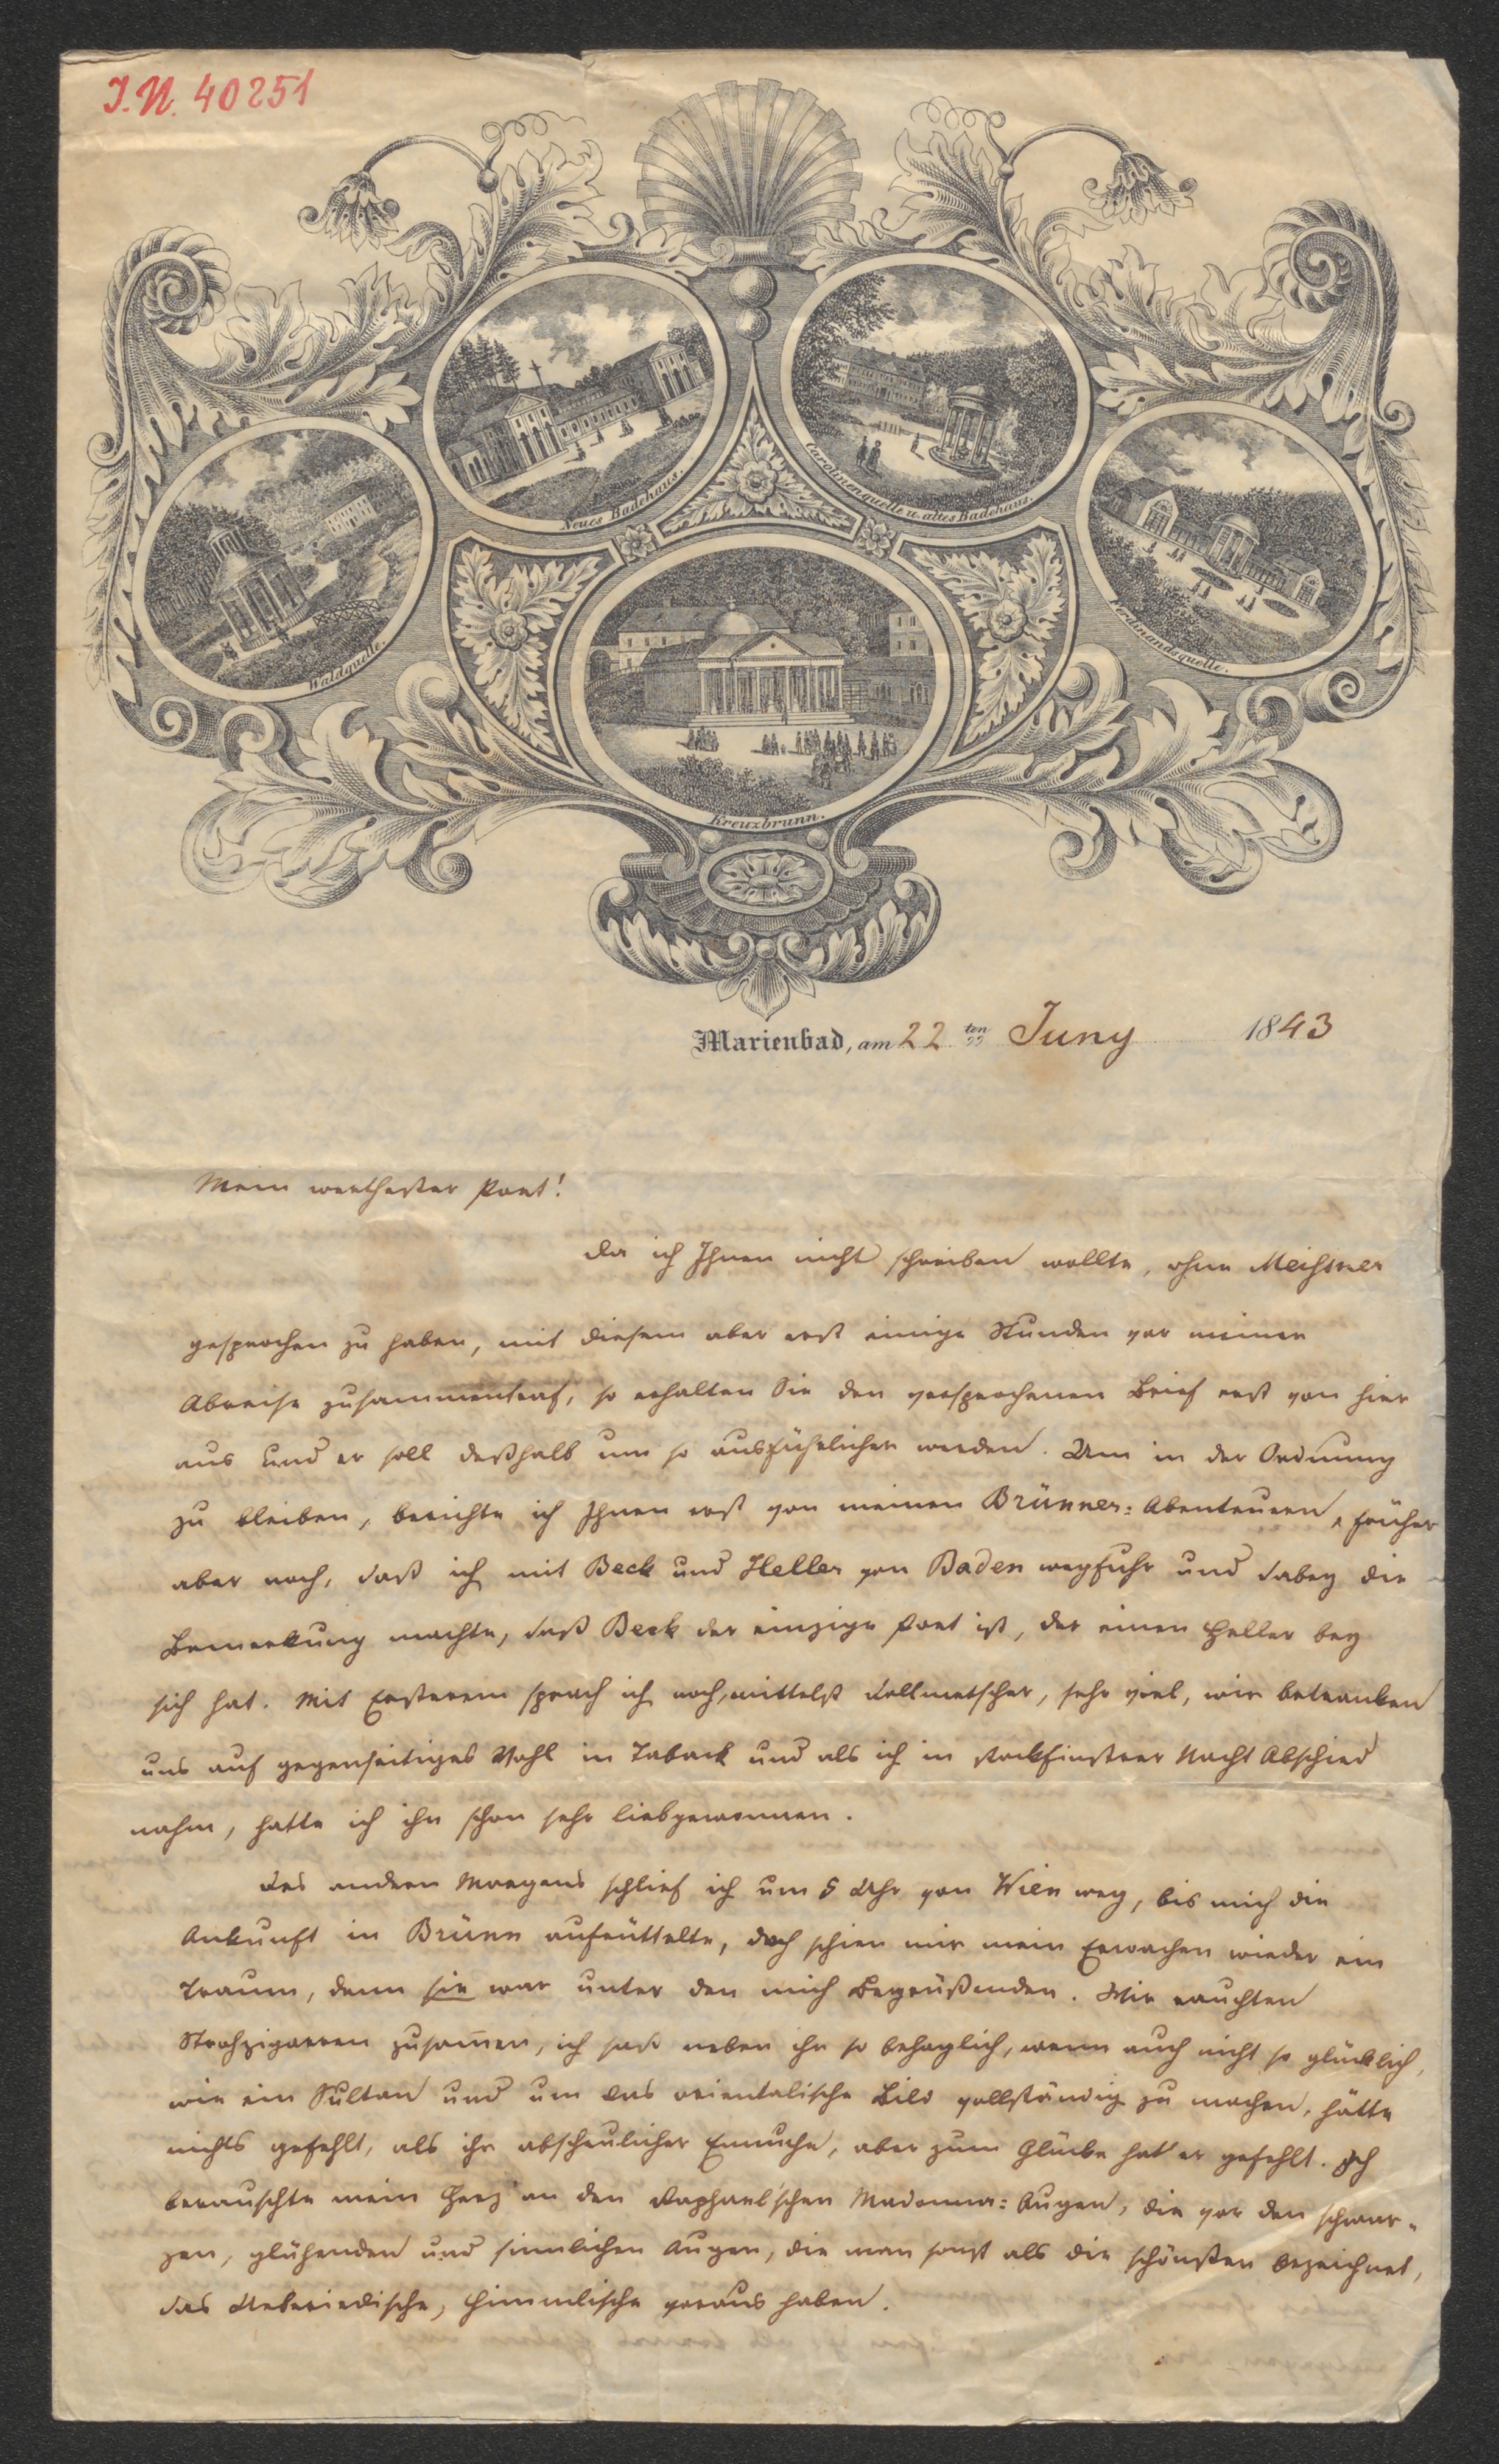 I.N. 40251
Neues Badehaus.
Carolinenquelle u. altes Badehaus.
Waldquelle.
Ferdinandsquelle.
Kreuzbrunn.
Marienbad, am 22 ten Juny 1843
Mein werthester Poet!
Da ich Ihnen nicht schreiben wollte, ohne Meißner
gesprochen zu haben, mit diesem aber erst einige Stunden vor meiner
Abreise zusammentraf, so erhalten Sie den versprochenen Brief erst von hier
aus und er soll deßhalb um so ausführlicher werden. Um in der Ordnung
zu bleiben, berichte ich Ihnen erst von meinen Brünner-Abenteuern, früher
aber noch, daß ich mit Beck und Heller von Baden wegfuhr und dabey die
Bemerkung machte, daß Beck der einzige Poet ist, der einen Heller bey
sich hat. Mit Ersterem sprach ich noch, mittelst Dollmetscher, sehr viel, wir betranken
uns auf gegenseitiges Wohl in Taback und als ich in stockfinstrer Nacht Abschied
nahm, hatte ich ihn schon sehr liebgewonnen.
Des andern Morgens schlief ich um 5 Uhr von Wien weg, bis mich die
Ankunft in Brünn aufrüttelte, doch schien mir mein Erwachen wieder ein
Traum, denn sie war unter den mich Begrüßenden. Wir rauchten
Strohzigarren zusam̄en, ich saß neben ihr so behaglich, wenn auch nicht so glücklich,
wie ein Sultan und um das orientalische Bild vollständig zu machen, hätte
nichts gefehlt, als ihr abscheulicher Eunuche, aber zum Glücke hat er gefehlt. Ich
berauschte mein Herz an den Raphael'schen Madonna-Augen, die vor den schwar-
zen, glühenden und sinnlichen Augen, die man sonst als die schönsten bezeichnet,
das Ueberirdische, Himmlische voraus haben.